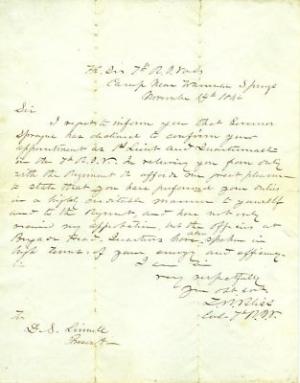 Hd. Qrs 7th R.I. Vols
Camp Near Warrenton Springs
November 14th 186
Sir
I regret to inform you that Governor
Sprague has declined to confirm your
appointment as 1st Lieut and Quartermaster
in the 7th R.I.V. In relieving you from duty
with the Regiment it affords me great pleasure
to state that you have performed your duties
in a highly creditable manner to yourself
and to the Regiment, and have not only
received my approbation, but the officers at
Brigade Head Quarters have also spoken in
high terms of your energy and efficiency.
I am Sir
very respectfully
your obt svt
Z.R. Bliss
Col. 7th R.I.V.
To
D. S.